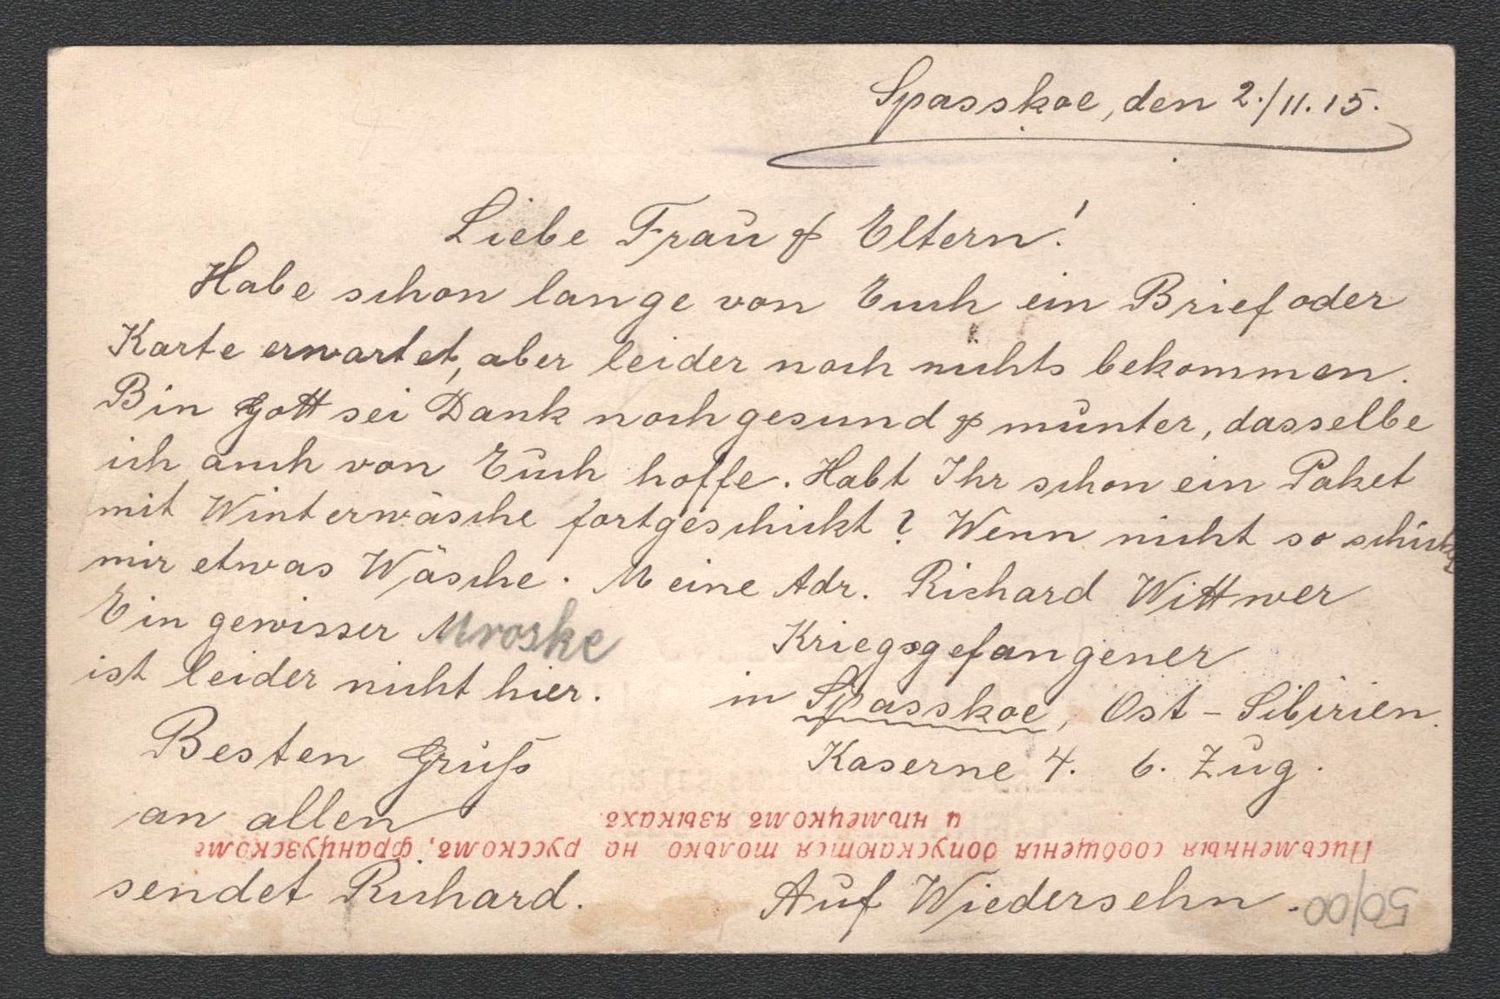 Spasskoe, den 2./11.15.
Liebe Frau & Eltern!
Habe schon lange von Euch ein Brief oder
Karte erwartet, aber leider noch nichts bekommen.
Bin Gott sei Dank noch gesund & munter, dasselbe
ich auch von Euch hoffe. Habt Ihr schon ein Paket
mit Winterwäsche fortgeschickt? Wenn nicht so schickt
mir etwas Wäsche. Meine Adr. Richard Wittwer
Ein gewisser Mroske Kriegsgefangener
ist leider nicht hier. in Spasskoe, Ost-Sibirien.
Besten Gruß Kaserne 4. 6. Zug.
an allen
sendet Richard. Auf Wiedersehn.
Письменныя сообщенія допускаются только на русскомъ, французскомъ
и нѣмецкомъ языкахъ.
50/00